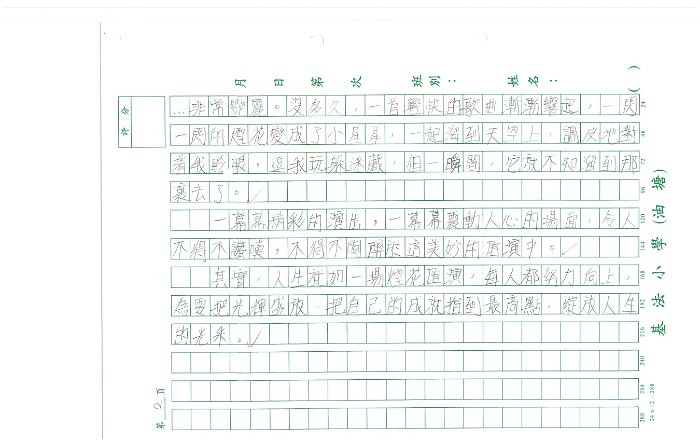 月 日 第 次 班別： 姓名： ( )
評分
…非常壯麗。沒多久，一首輕快的歌曲漸漸響起，一閃
一閃的煙花變成了小星星，一起溜到天空上，調皮地對
着我眨眼，逗我玩躲迷藏，但一瞬間，它就不知溜到那
裏去了。
一幕幕精彩的演出，一幕幕震動人心的場面，令人
不得不讚嘆，不得不陶醉於這美妙的匯演中。
其實，人生就如一場煙花匯演，每人都努力向上，
為要把光輝盛放，把自己的成就推到最高點，綻放人生
的光采。
24
48
72
96
120
144
168
192
216
240
264
288
24 x 12 = 288
基法小學(油塘)
第 2 頁